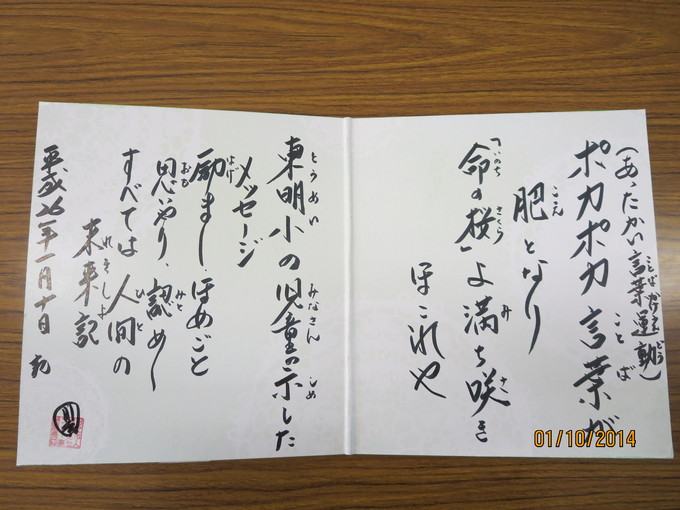 （あったかい言葉かけ運動）
ポカポカ言葉が
肥となり
「命の桜」よ満ち咲き
ほこれや
東明小の児童の示した
メッセージ
励まし、ほめごと
思いやり、認め
すべては人間の
未来記
平成26年一月十日 記
01/10/2014